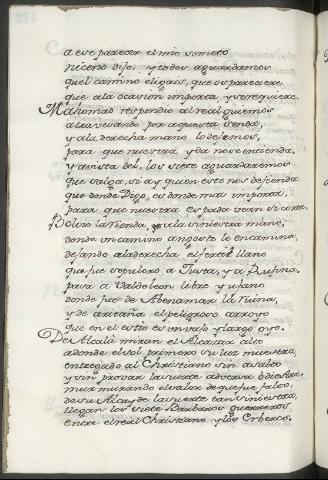 a ese parecer el mio someto
niceno dijo, y todos aguardamos
quel camino eligais, que os pareciere
que a la ocasion importa, y se requiere.
Mahomad respondio al real guiemos
atravesando por aquesta senda,
y a la derecha mano lo dejemos,
para que nuestra yda no se entienda,
y a vista del, los siete aguardaremos
que salga, si ay quien esto nos defienda
que donde Digo, es donde mas importa,
para que nuestra espada vean si corta.
Bolvio la rienda, a la siniestra mano,
donde un camino angosto le encamina,
dejando a la derecha el fertil llano
que fue sepulcro a Justa, y a Rufina.
pasa a Valdeleon libre y ufano
donde fue de Abenamar la ruina,
y de el peligroso arroyo
que en el estio es un vaso y largo oyo.
De Alcalá miran el Alcaçar alto
adonde el sol primero su luz muestra,
entregado al Christiano sin asalto
y sin provar la suerte adversa o diestra,
murmurando el valor de que fue falto,
de su Alcayde la suerte tan siniestra,
llegan los siete Barbaros guerreros
entre el real Christiano y los Erberos.